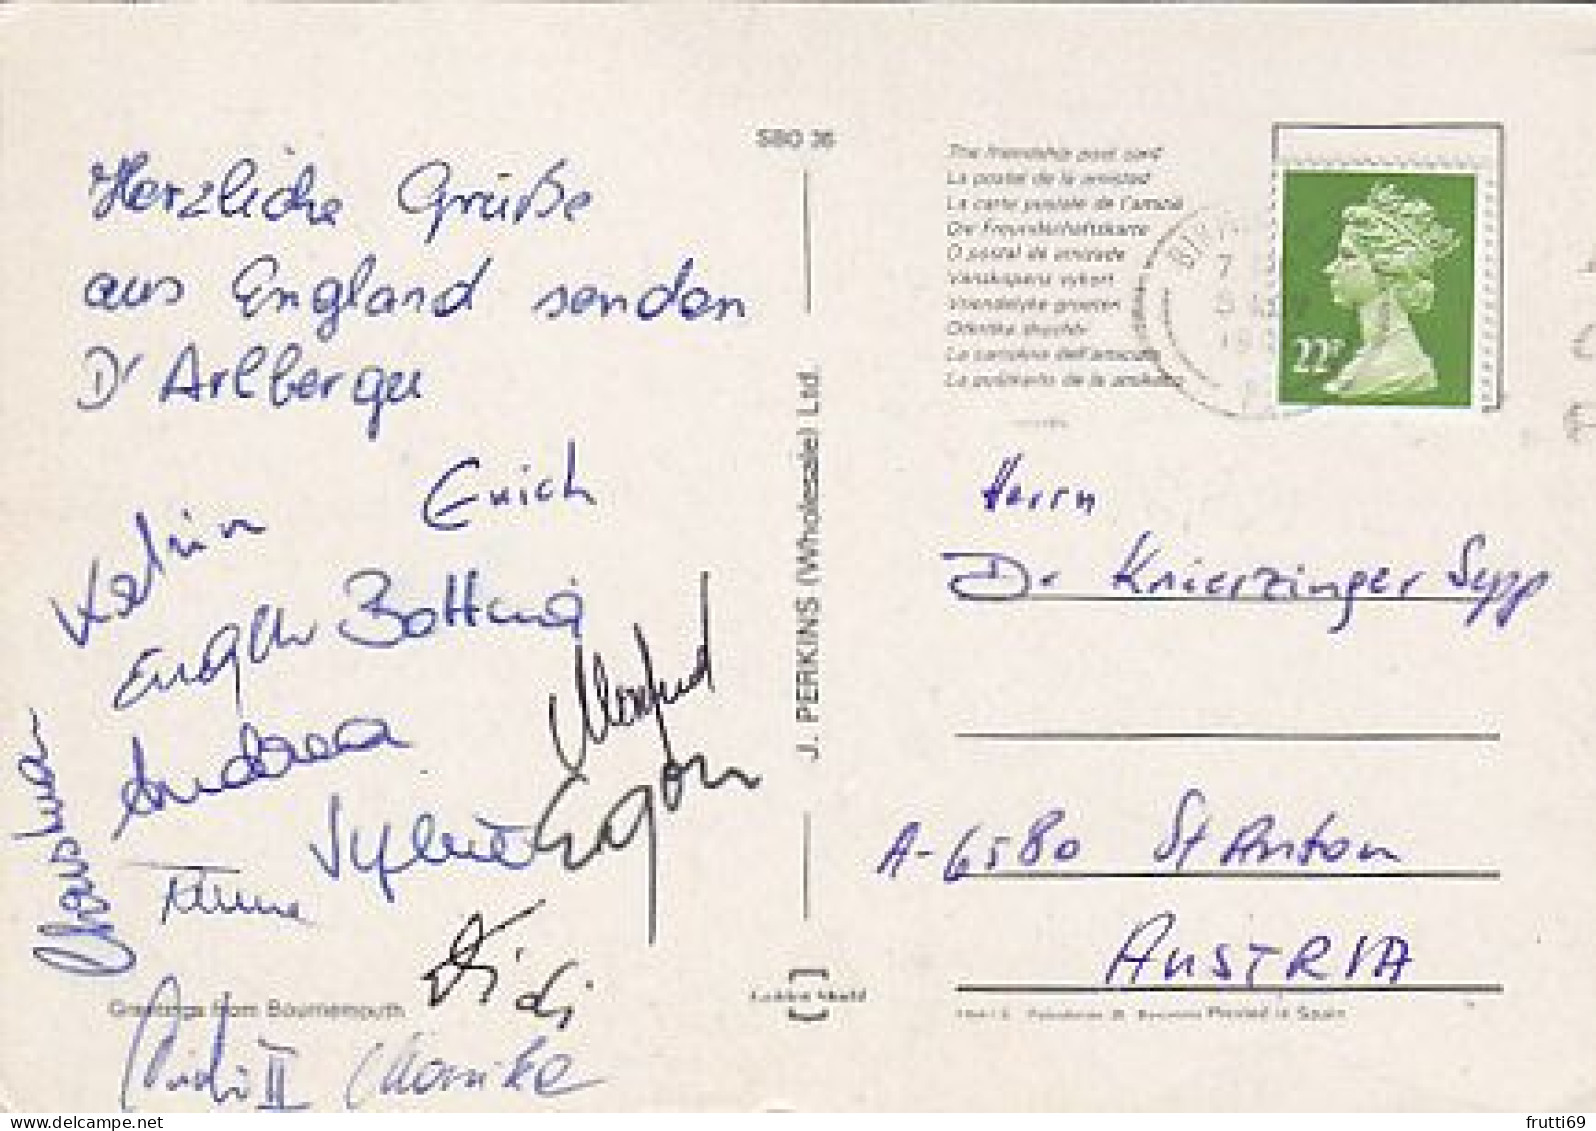 SBO 36
Herzliche Grüße
aus England senden
D' Arlberger
Erich
Katrin
Andrea
Manfred
Egon
Sylvia
Didi
Greetings from Bournemouth
II Monika
J. PERKINS (Wholesale) Ltd.
The friendship post card
La postal de la amistad
La carte postale de l'amitié
Die Freundschaftskarte
O postal de amizade
Vänskapens vykort
Vriendelijke groeten
La cartolina dell'amicizia
22P
Herrn
Dr Knierzinger Sepp
A-6580 St Anton
AUSTRIA
Golden Shield
Printed in Spain
frutti69